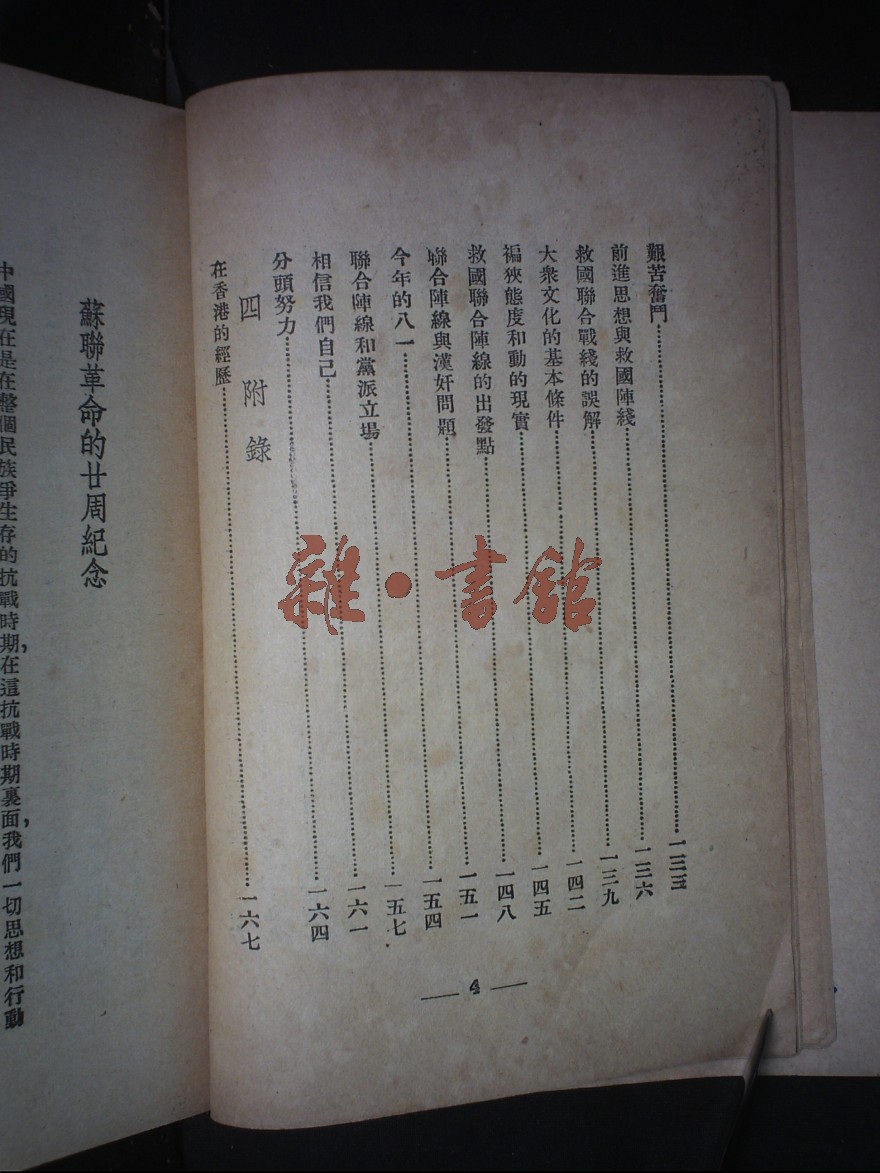 艱苦奮鬥……一三三
前進思想與救國陣綫……一三六
救國聯合戰綫的誤解……一三九
大衆文化的基本條件……一四二
褊狹態度和動的現實……一四五
救國聯合陣線的出發點……一四八
聯合陣線與漢奸問題……一五一
今年的八一……一五四
聯合陣線和黨派立場……一五七
相信我們自己……一六一
分頭努力……一六四
四 附錄
在香港的經歷……一六七
— 4 —
蘇聯革命的廿周紀念
中國現在是在整個民族爭生存的抗戰時期，在這抗戰時期裏面，我們一切思想和行動
雜·書館